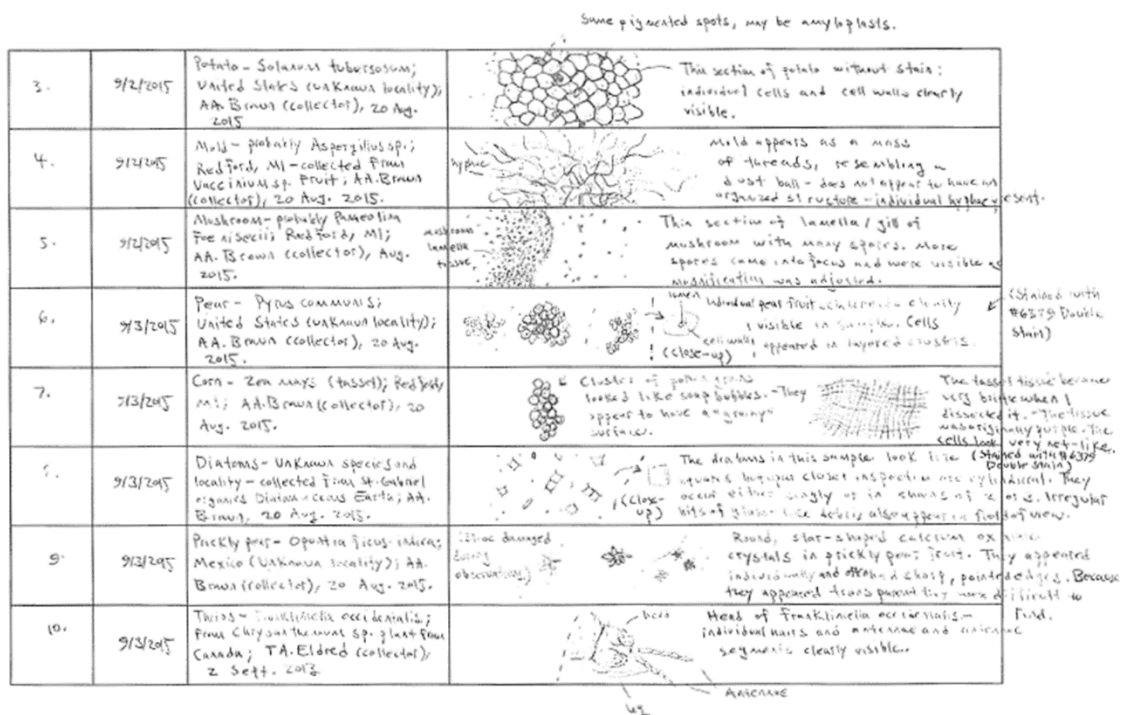 Some pigmented spots, may be amyloplasts.
3.
9/2/2015
Potato - Solanum tubersosum;
United States (unknown locality);
AA. Brown (collector), 20 Aug.
2015
Thin section of potato without stain;
individual cells and cell walls clearly
visible.
4.
9/2/2015
Mold - probably Aspergillus sp.;
Redford, MI - collected from
Vaccinium sp. fruit; AA. Brown
(collector), 20 Aug. 2015.
hyphae
Mold appears as a mass
of threads, resembling a
dust ball - does not appear to have an
organized structure - individual hyphae present.
5.
9/2/2015
Mushroom - probably Panaeolina
foenisecii; Redford, MI;
AA. Brown (collector), Aug.
2015.
mushroom
lamella
tissue
Thin section of lamella/gill of
mushroom with many spores. More
spores came into focus and were visible as
magnification was adjusted.
6.
9/3/2015
Pear - Pyrus communis;
United States (unknown locality);
AA. Brown (collector), 20 Aug.
2015.
lumen
cell walls
(close-up)
Individual pear fruit clearly
visible in sample. Cells
appeared in layered clusters.
(Stained with
#6379 Double
Stain)
7.
9/3/2015
Corn - Zea mays (tassel); Redford,
MI; AA. Brown (collector), 20
Aug. 2015.
Cluster of pollen grains
looked like soap bubbles. They
appear to have a "grainy"
surface.
The tassel tissue became
very brittle when I
dissected it. The tissue
was originally purple. The
cells look very net-like.
(Stained with #6379
Double Stain)
9/3/2015
Diatoms - Unknown species and
locality - collected from St. Gabriel
organics Diatomaceous Earth; AA.
Brown, 20 Aug. 2015.
(close-
up)
The diatoms in this sample look like
squares but upon closer inspection are cylindrical. They
occur either singly or in chains of 2 or 3. Irregular
bits of glass-like debris also appear in field of view.
9.
9/3/2015
Prickly pear - Opuntia ficus-indica;
Mexico (unknown locality); AA.
Brown (collector), 20 Aug. 2015.
damaged
during
observation)
Round, star-shaped calcium
crystals in prickly pear fruit. They appeared
individually and had sharp, pointed edges. Because
they appeared transparent they were difficult to
find.
10.
9/3/2015
Thrips - Frankliniella occidentalis;
from Chrysanthemum sp. plant from
Canada; TA. Eldred (collector),
2 Sept. 2013
head
Head of Frankliniella occidentalis -
individual hairs and antennae and antennae
segments clearly visible.
Antennae
leg